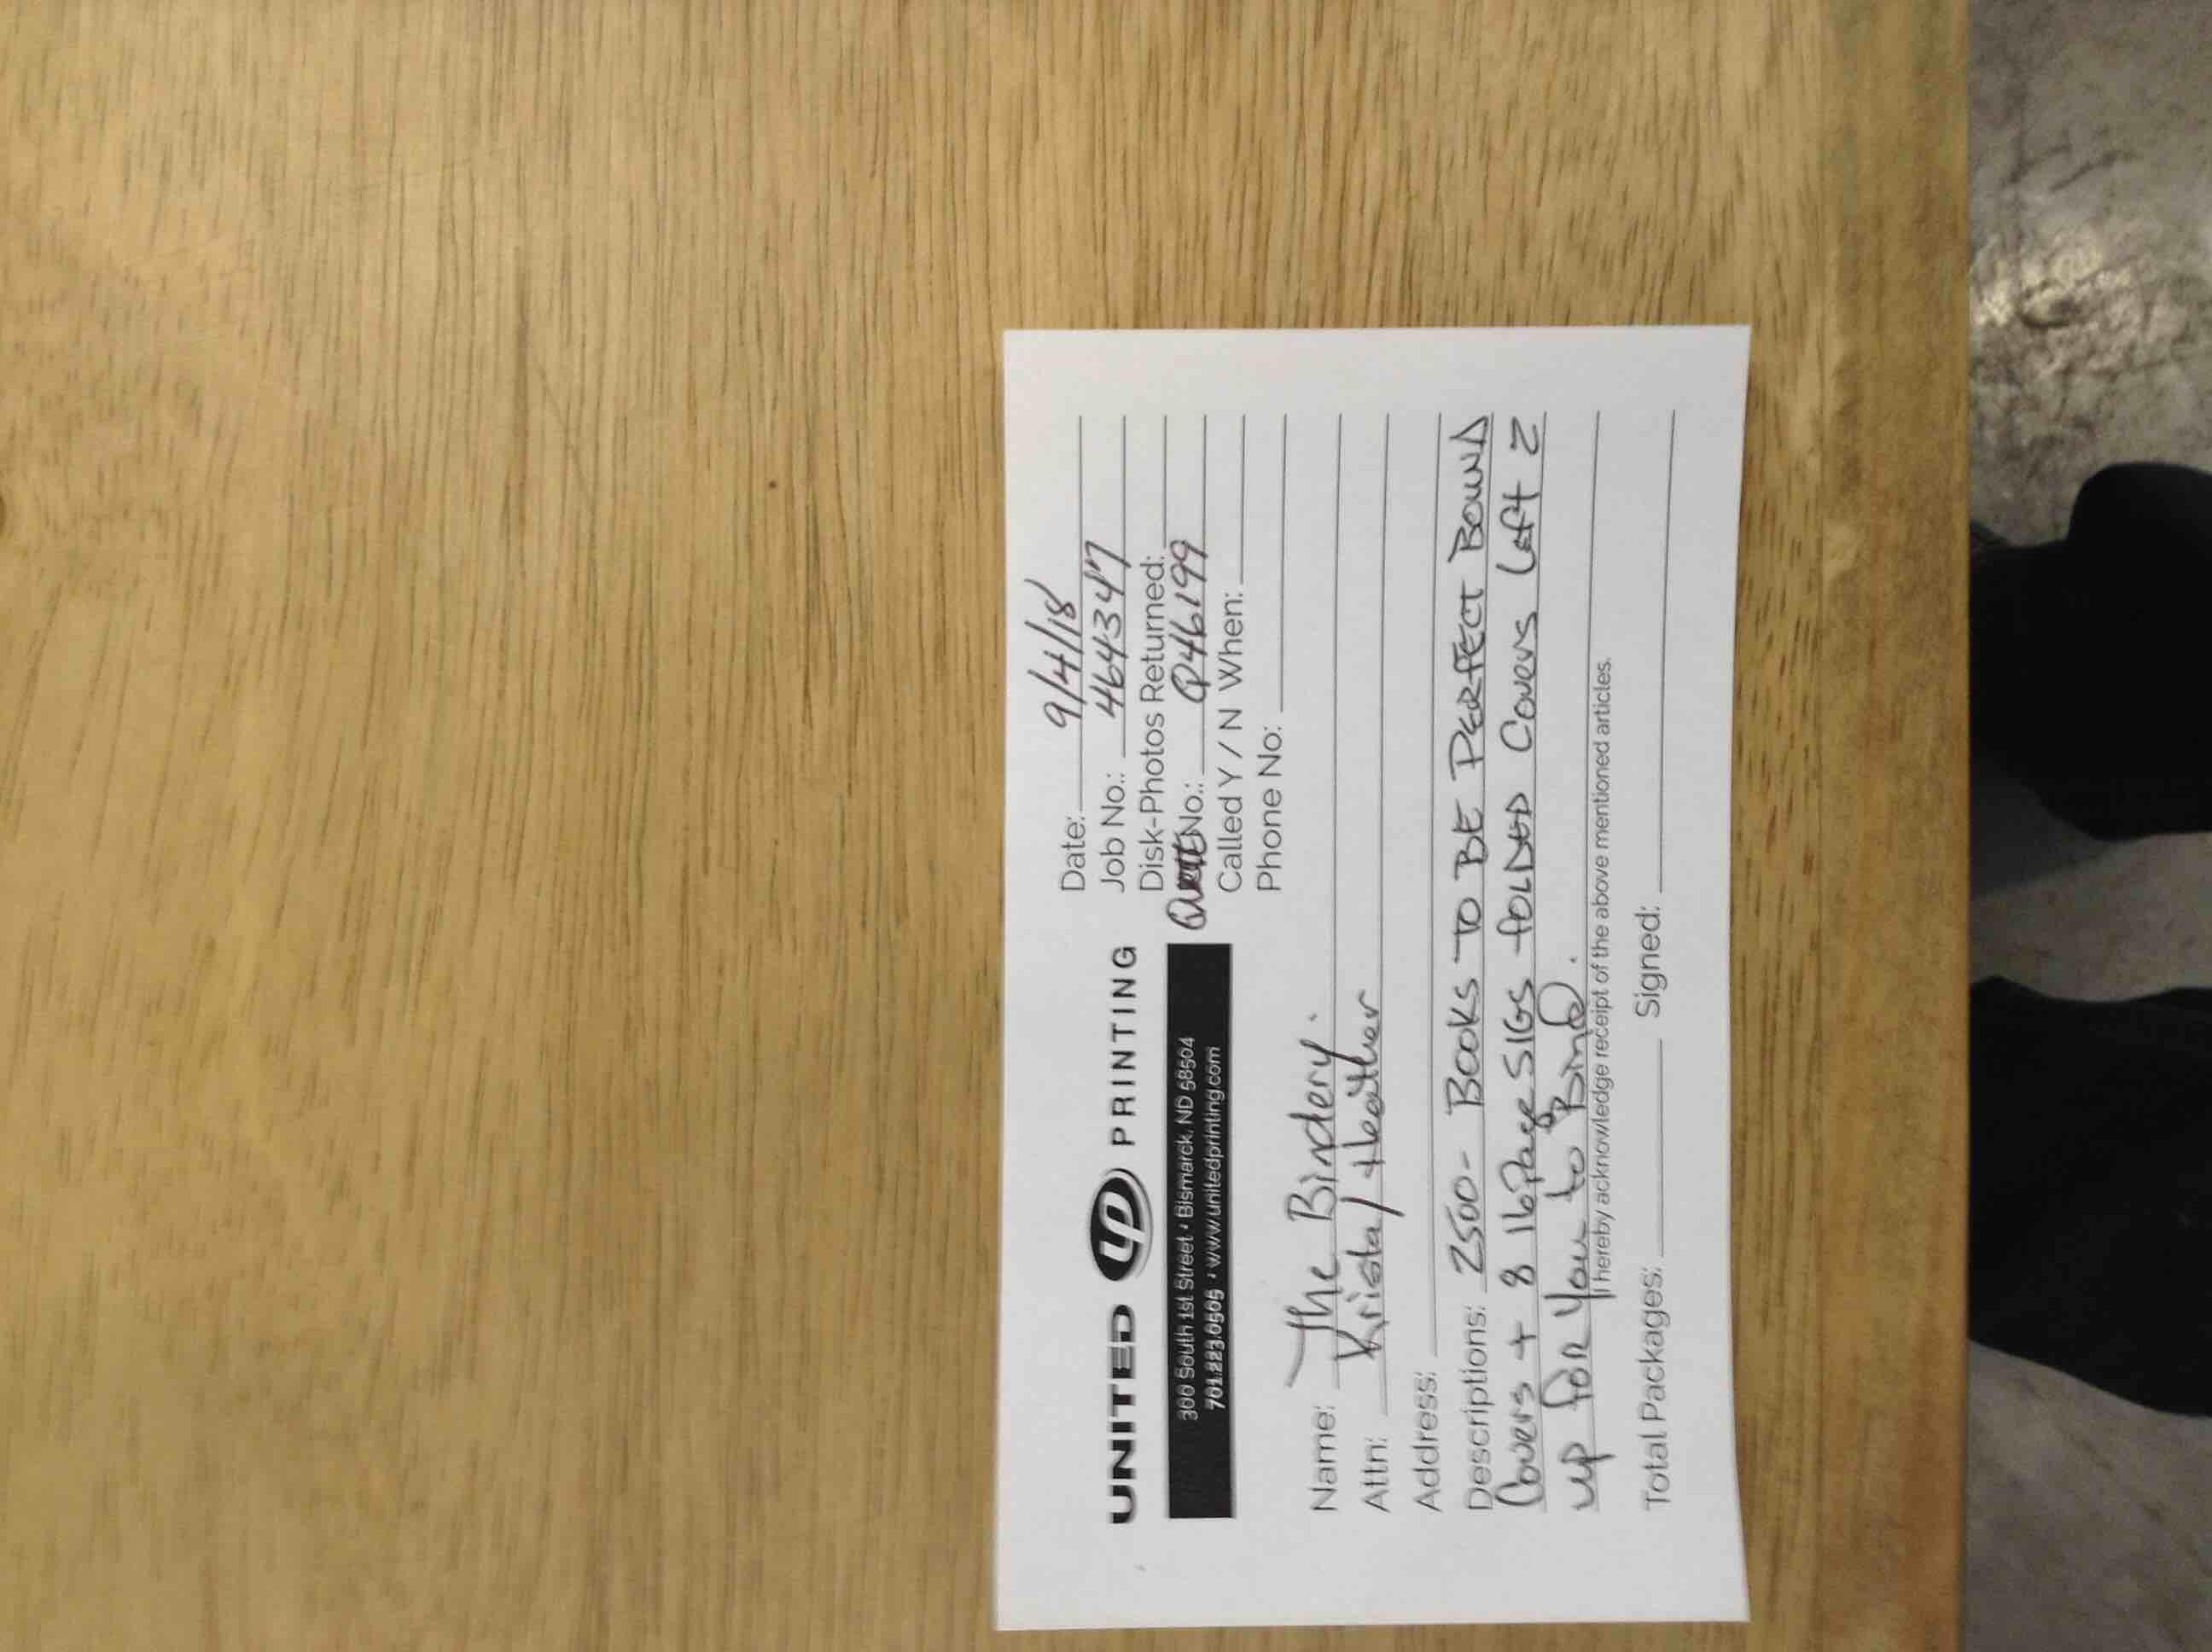 UNITED UP PRINTING
300 South 1st Street • Bismarck, ND 58504
701.223.0505 • www.unitedprinting.com
Date: 9/4/18
Job No.: 464347
Disk-Photos Returned:
Quote No.: Q46199
Called Y / N When:
Phone No:
Name: The Bindery.
Attn: Krista/Heather
Address:
Descriptions: 2500- Books TO BE PERFECT BOUND
Covers + 8 16 Page SIGS FOLDED Covers Left 2
up for you to Bind.
I hereby acknowledge receipt of the above mentioned articles.
Total Packages: Signed: